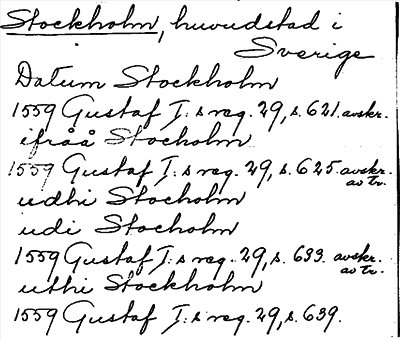 Stockholm, huvudstad i
Sverige
Datum Stockholm
1559 Gustaf I:s reg. 29, s. 621. avskr.
ifråå Stocholm
1559 Gustaf I:s reg. 29, s. 625. avskr. av tr.
udhi Stockholm
udi Stocholm
1559 Gustaf I:s reg. 29, s. 633. avskr. av tr.
uthi Stockholm
1559 Gustaf I:s reg. 29, s. 639.